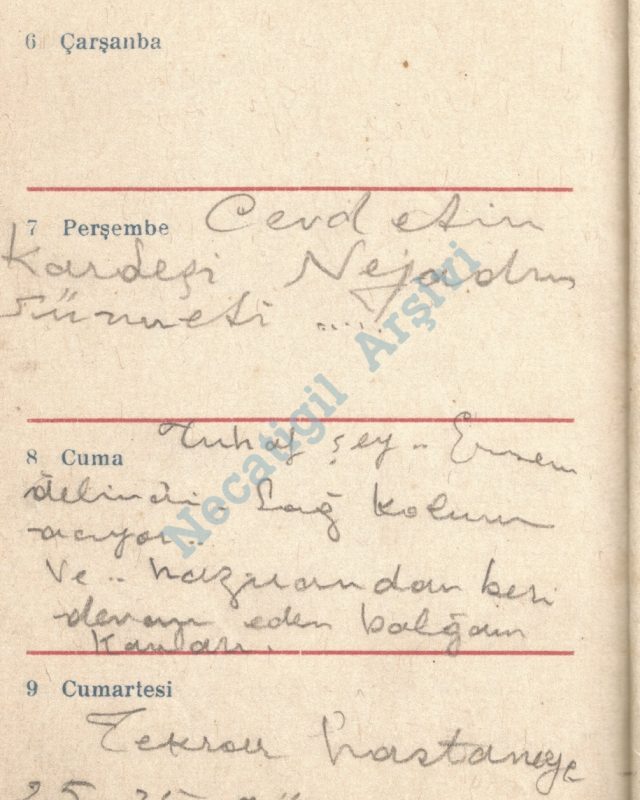 6 Çarşanba
7 Perşembe Cevdetin
Kardeşi Nejadın
sünneti .....
8 Cuma Tuhaf şey..
delindi. Sağ kolum
acıyor..
Ve.. hazirandan beri
devam eden balğam
kanları.
9 Cumartesi
Tekrar hastaneye
25
Necatigil Arşivi